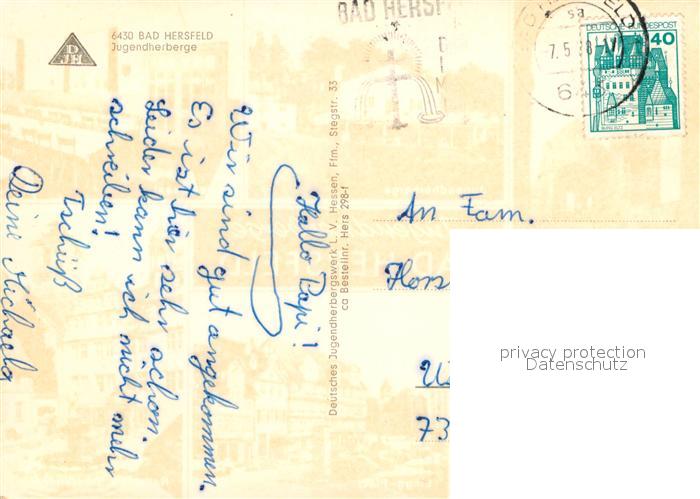 6430 BAD HERSFELD
Jugendherberge
DJH
Hallo Papi!
Wir sind gut angekommen.
Es ist hir sehr schön.
Leider kann ich nicht mehr
schreiben!
Tschüß
Deine Michaela
Deutsches Jugendherbergswerk L.V. Hessen, Ffm., Stegstr. 33
ca Bestellnr. Hers 298-f
BAD HERSF
7.5.
DEUTSCHE BUNDESPOST
40
BURG ELTZ
An Fam.
Hors
W
73
privacy protection
Datenschutz